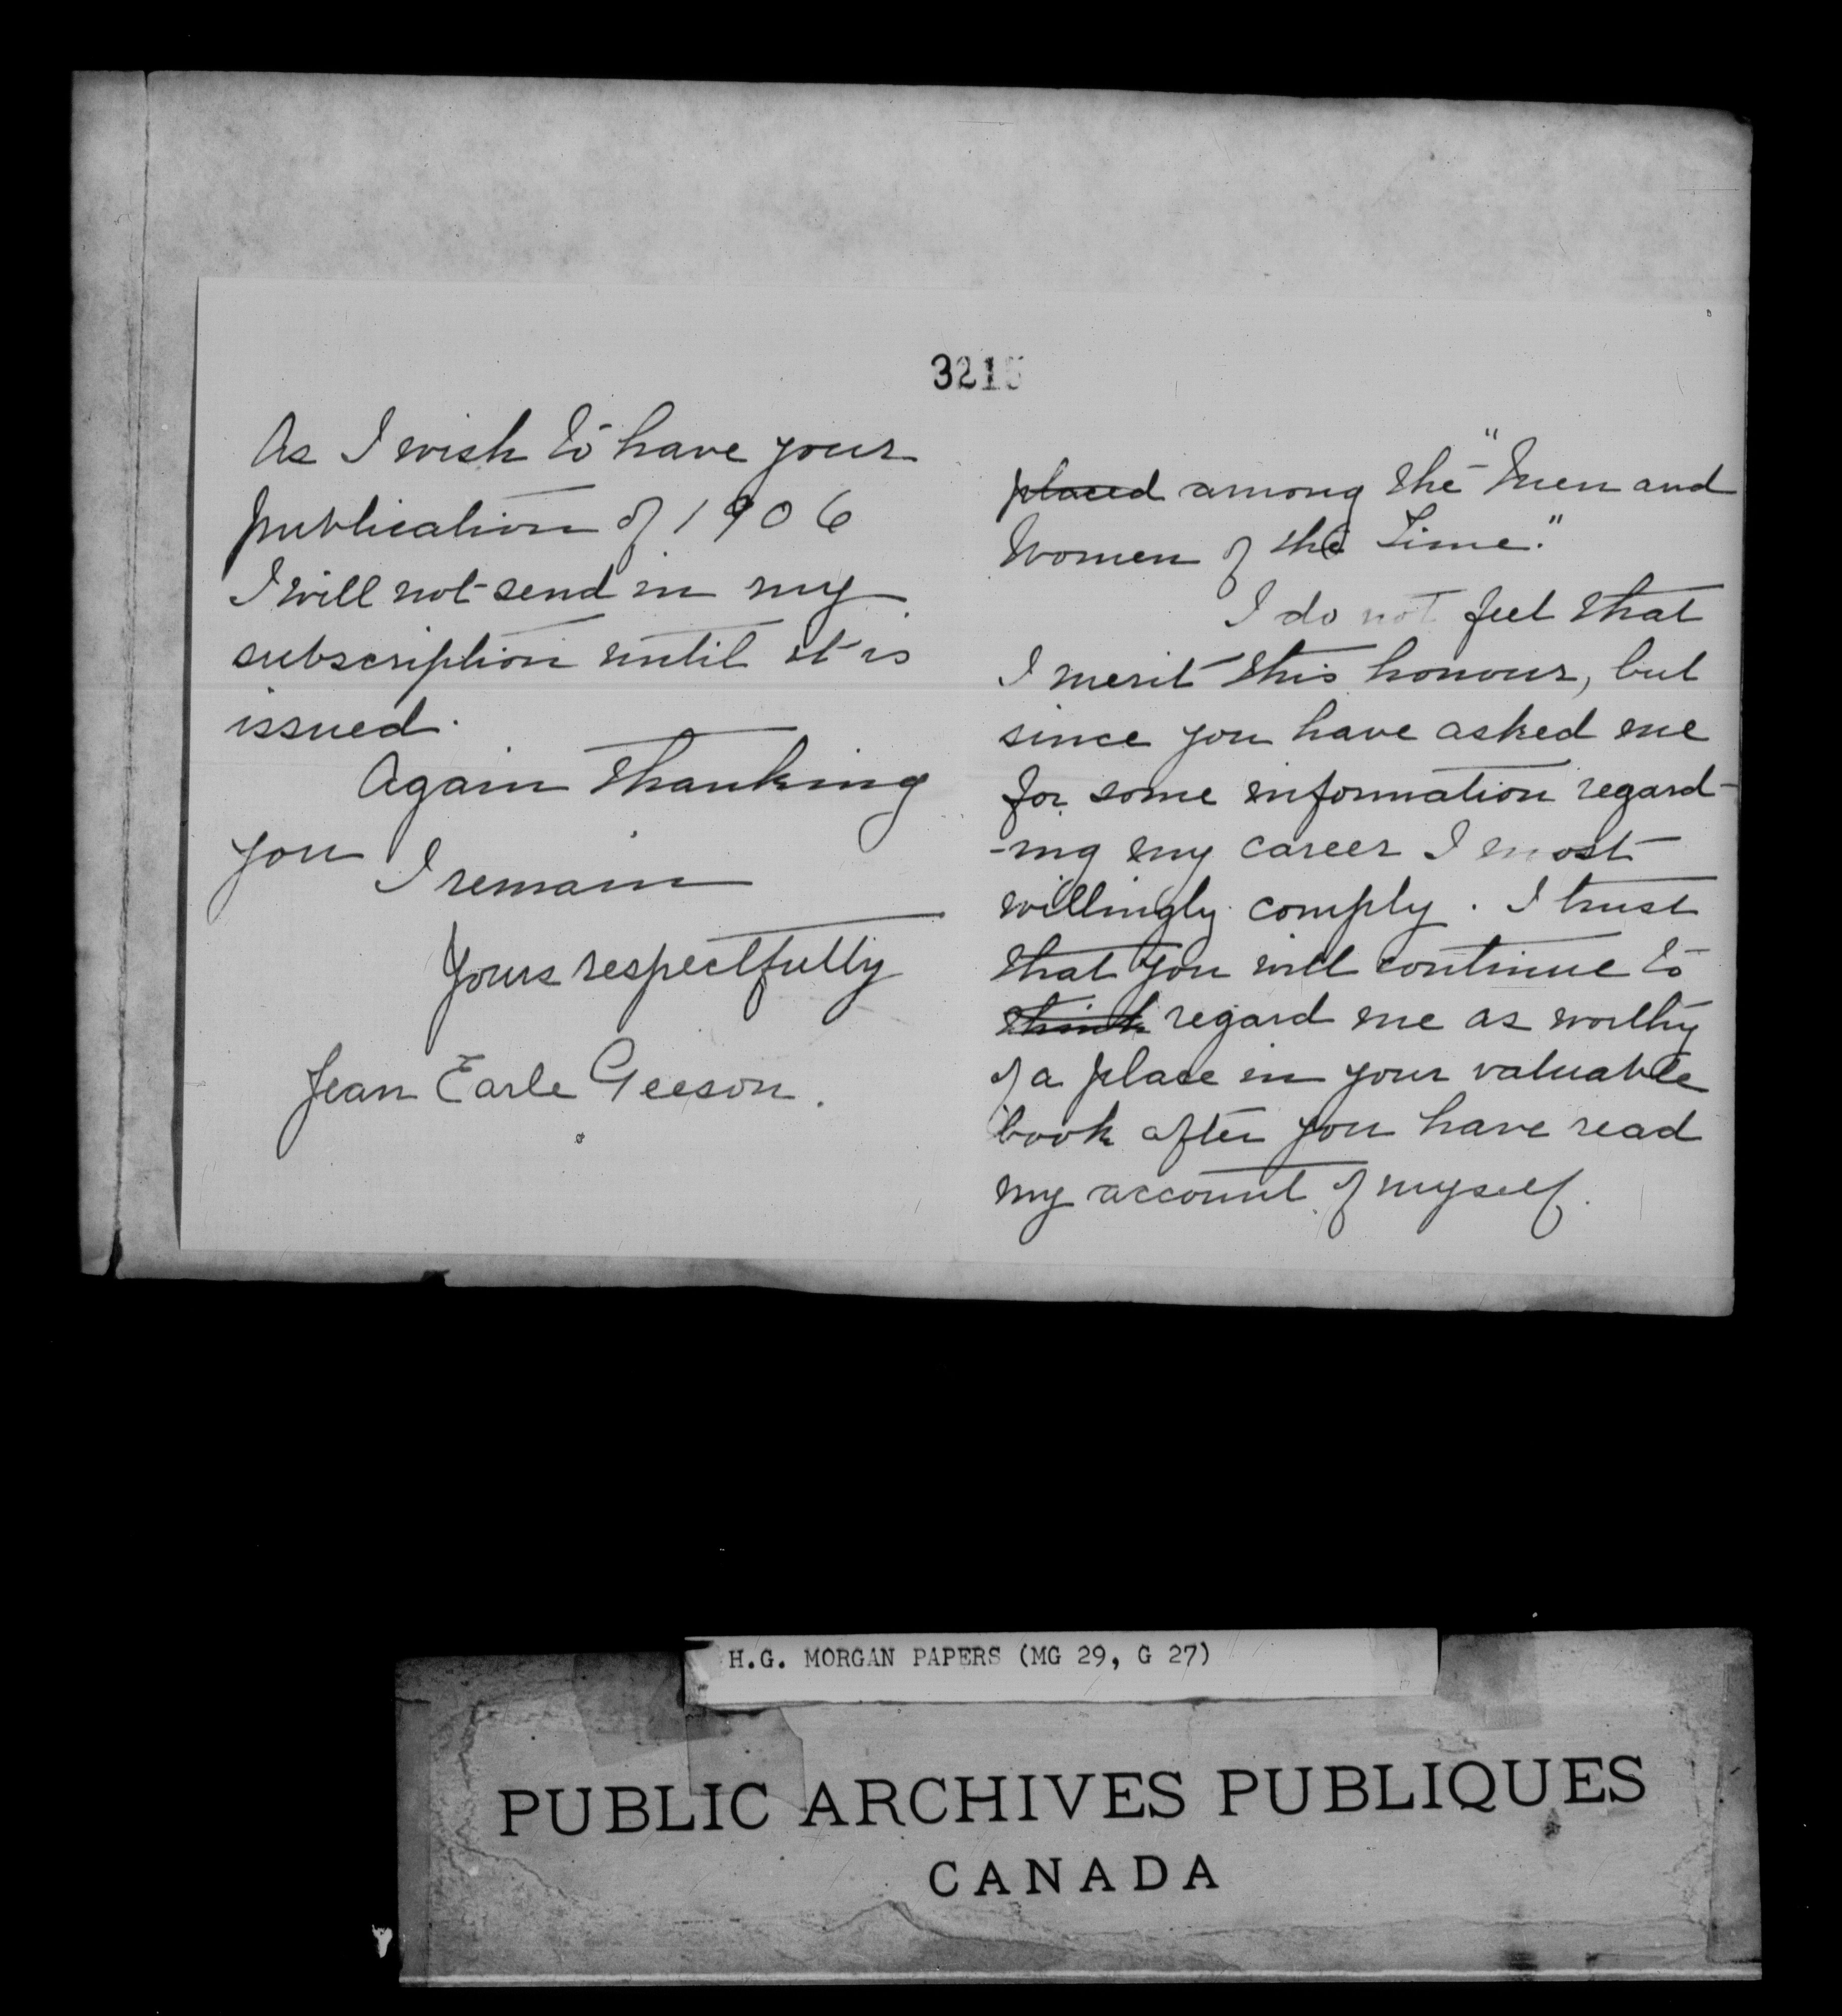 3215
As I wish to have your
publication of 1906
I will not send in my
subscription until it is
issued.
Again thanking
you I remain
Yours respectfully
Jean Earle Geeson.
placed among the "Men and
Women of the Time."
I do not feel that
I merit this honour, but
since you have asked me
for some information regard-
-ing my career I most
willingly comply. I trust
that you will continue to
think regard me as worthy
of a place in your valuable
book after you have read
my account of myself.
H.G. MORGAN PAPERS (MG 29, G 27)
PUBLIC ARCHIVES PUBLIQUES
CANADA